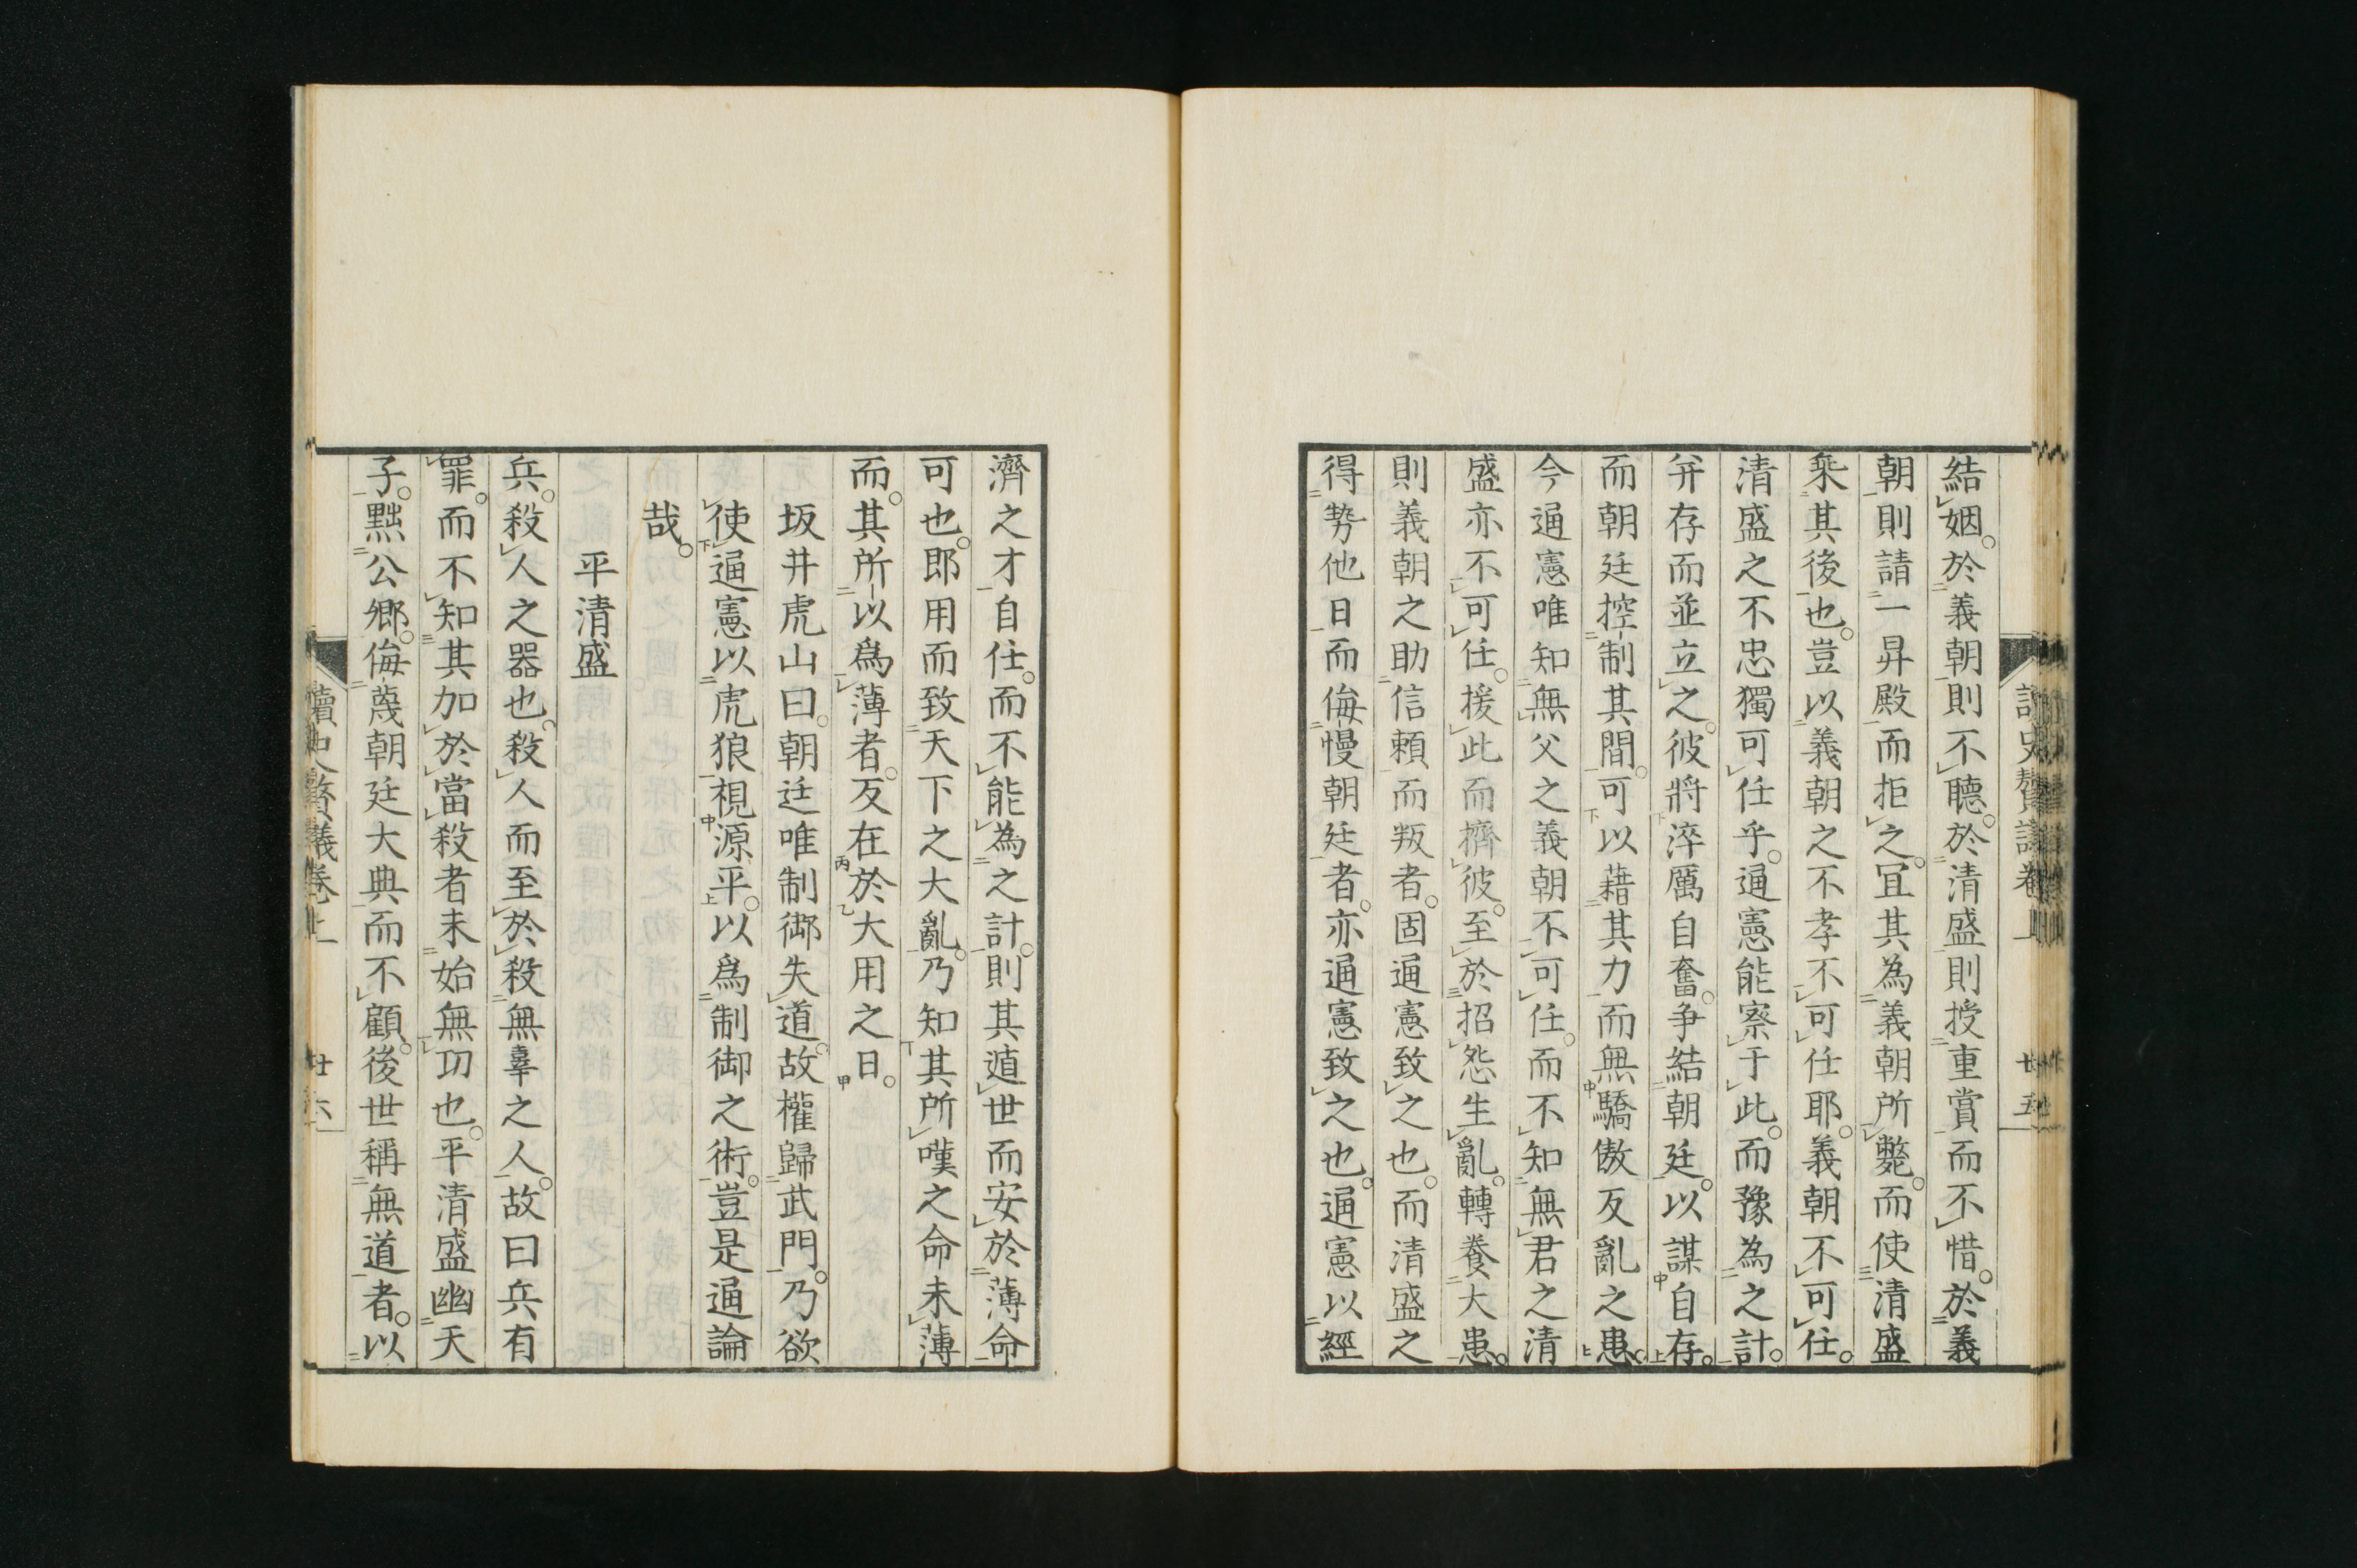 結姻。於義朝則不聽。於清盛則授重賞而不惜。於義
朝則請一昇殿而拒之。冝其為義朝所斃。而使清盛
乘其後也。豈以義朝之不孝不可任耶。義朝不可任。
清盛之不忠獨可任乎。通憲能察于此。而豫為之計。
并存而並立之。彼將淬厲自奮。爭結朝廷。以謀自存。
而朝廷控制其間。可以藉其力而無驕傲反亂之患。
今通憲唯知無父之義朝不可任。而不知無君之清
盛亦不可任。援此而擠彼。至於招怨生亂。轉養大患。
則義朝之助信賴而叛者。固通憲致之也。而清盛之
得勢他日而侮慢朝廷者。亦通憲致之也。通憲以經
濟之才自任。而不能為之計。則其遁世而安於薄命
可也。郎用而致天下之大亂。乃知其所嘆之命未薄
而。其所以爲薄者。反在於大用之日。
坂井虎山曰。朝廷唯制御失道。故權歸武門。乃欲
使通憲以虎狼視源平。以爲制御之術。豈是通論
哉。
平清盛
兵。殺人之器也。殺人而至於殺無辜之人。故曰兵有
罪。而不知其加於當殺者未始無功也。平清盛幽天
子。黜公卿。侮蔑朝廷大典而不顧。後世稱無道者。以
讀史贅議卷上 廿五
讀史贅議卷上 廿六